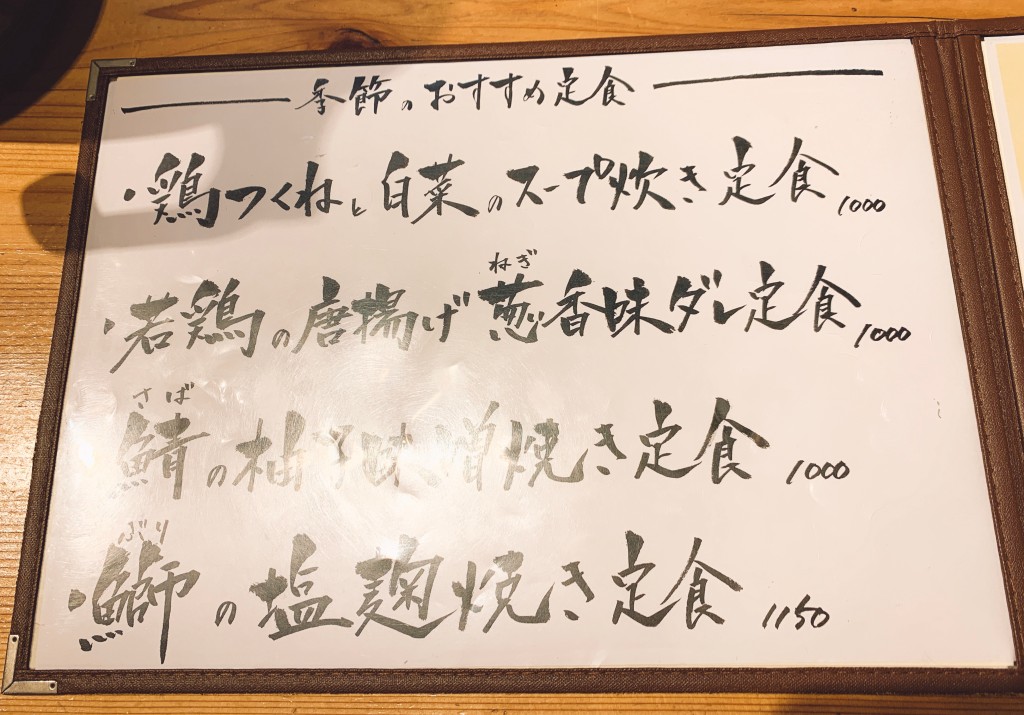 季節のおすすめ定食
・鶏つくねと白菜のスープ炊き定食 1000
ねぎ
・若鶏の唐揚げ葱香味ダレ定食 1000
さば
鯖の柚子味噌焼き定食 1000
ぶり
・鰤の塩麹焼き定食 1150